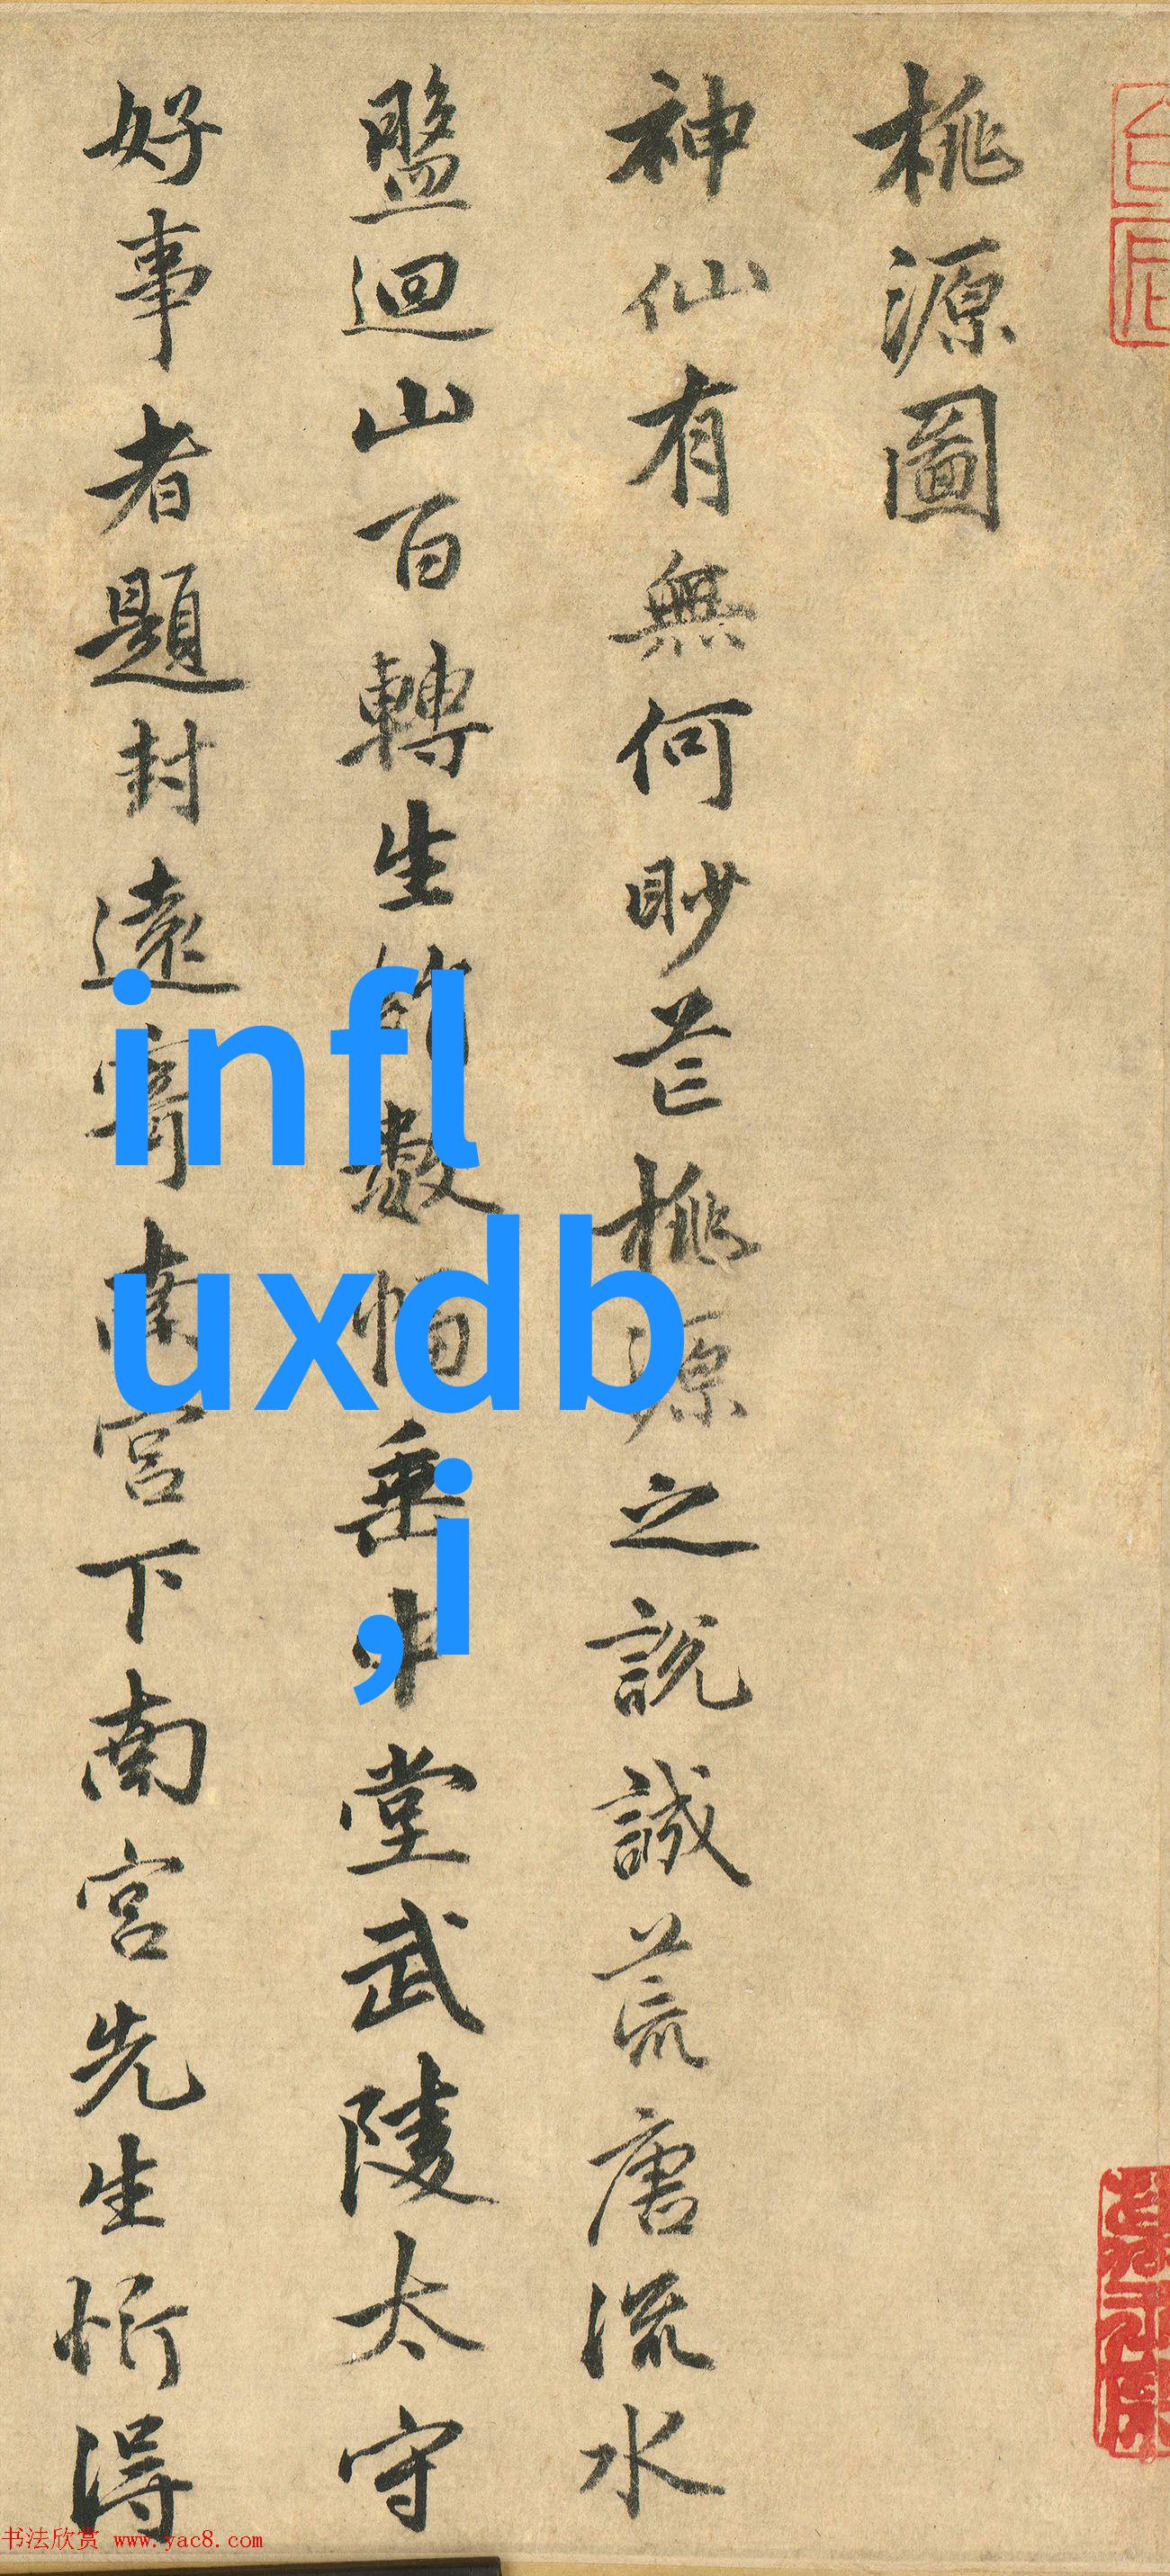 桃源圖
神仙有無何眇芒桃源之說誠荒唐流水
盤迴山百轉生數幅垂中堂武陵太守
好事者題封遠寄南宮下南宮先生忻得
infl
uxdb
,i
书法欣赏 www.yac8.com